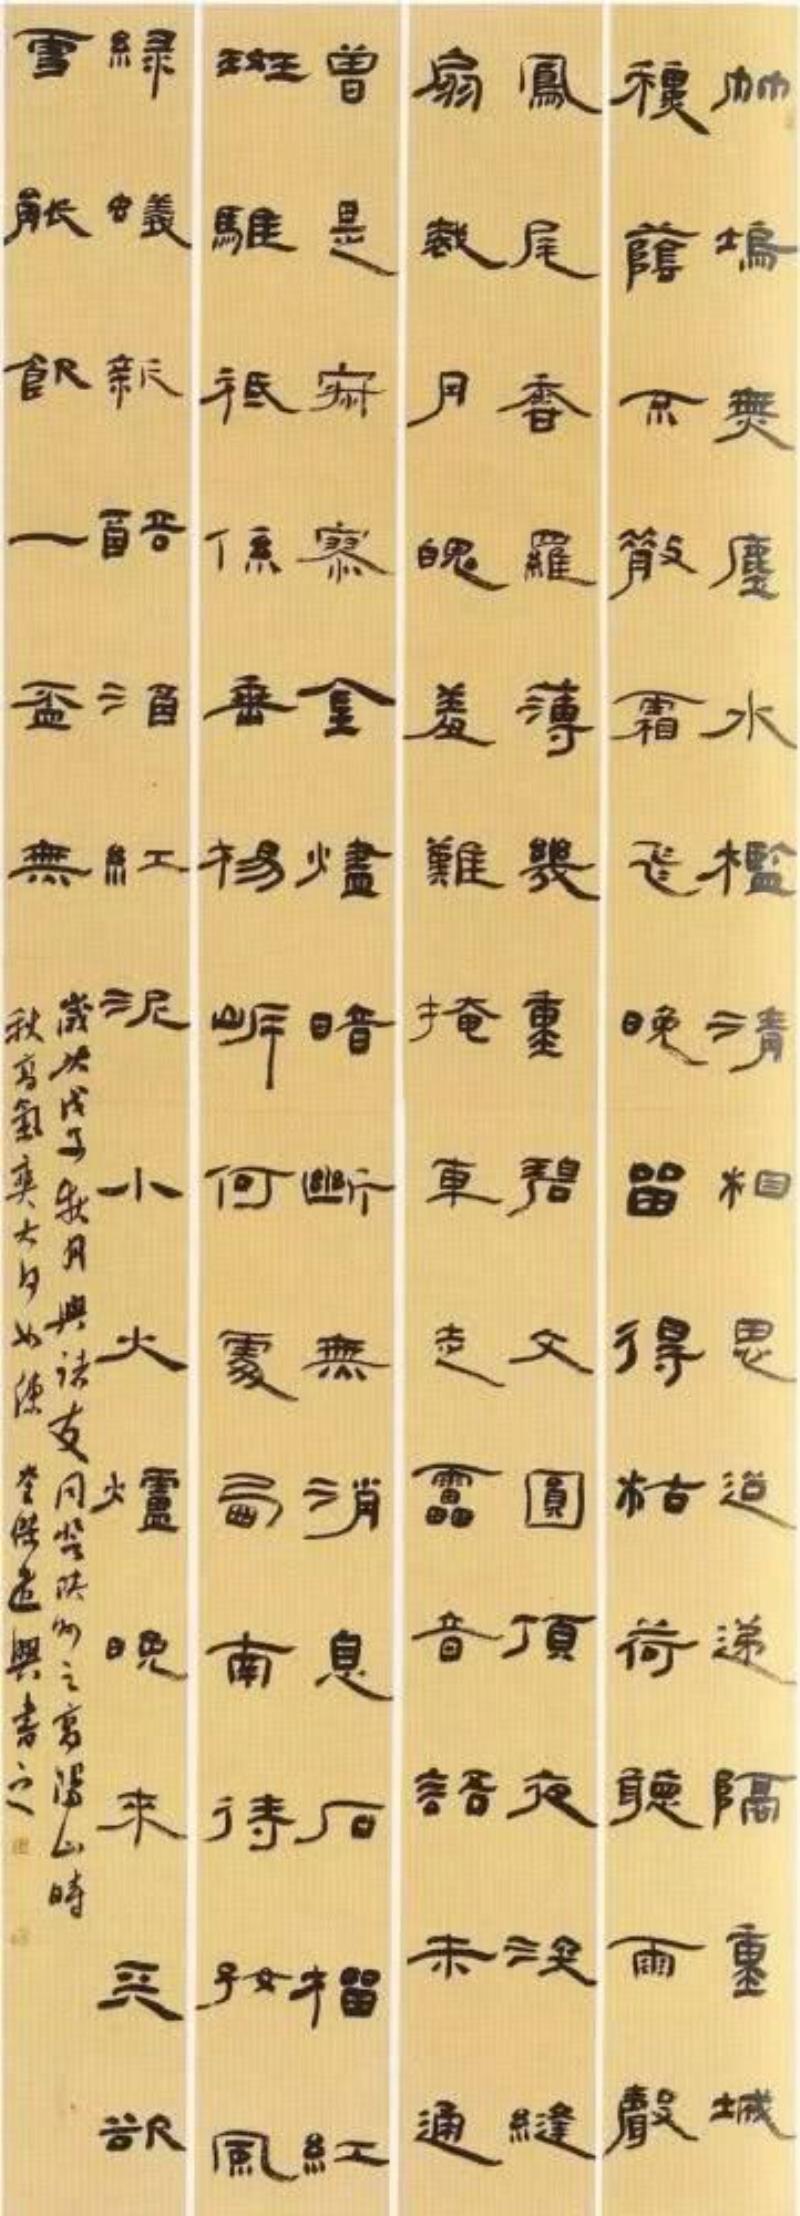 竹塢無塵水檻清相思迢递隔重城
穐蔭不散霜飛晚留得枯荷聽雨聲
鳳尾香羅薄幾重碧文圓頂夜深縫
扇裁月魄羞難掩車走靁音語未通
曾是寂寥金燼暗斷無消息石榴紅
斑騅祗係垂楊岸何處西南待好風
綠蟻新醅酒紅泥小火爐晚來天欲
雪能飲一盃無
歲次戊子秋月與諸友同登陝州之高陽山時
秋高氣爽大 遣興書之